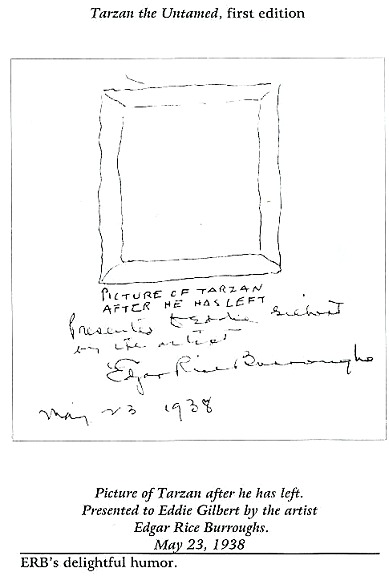 Tarzan the Untamed, first edition
PICTURE OF TARZAN
AFTER HE HAS LEFT
Presented to Eddie Gilbert
by the artist
Edgar Rice Burroughs
May 23 1938
Picture of Tarzan after he has left.
Presented to Eddie Gilbert by the artist
Edgar Rice Burroughs.
May 23, 1938
ERB's delightful humor.